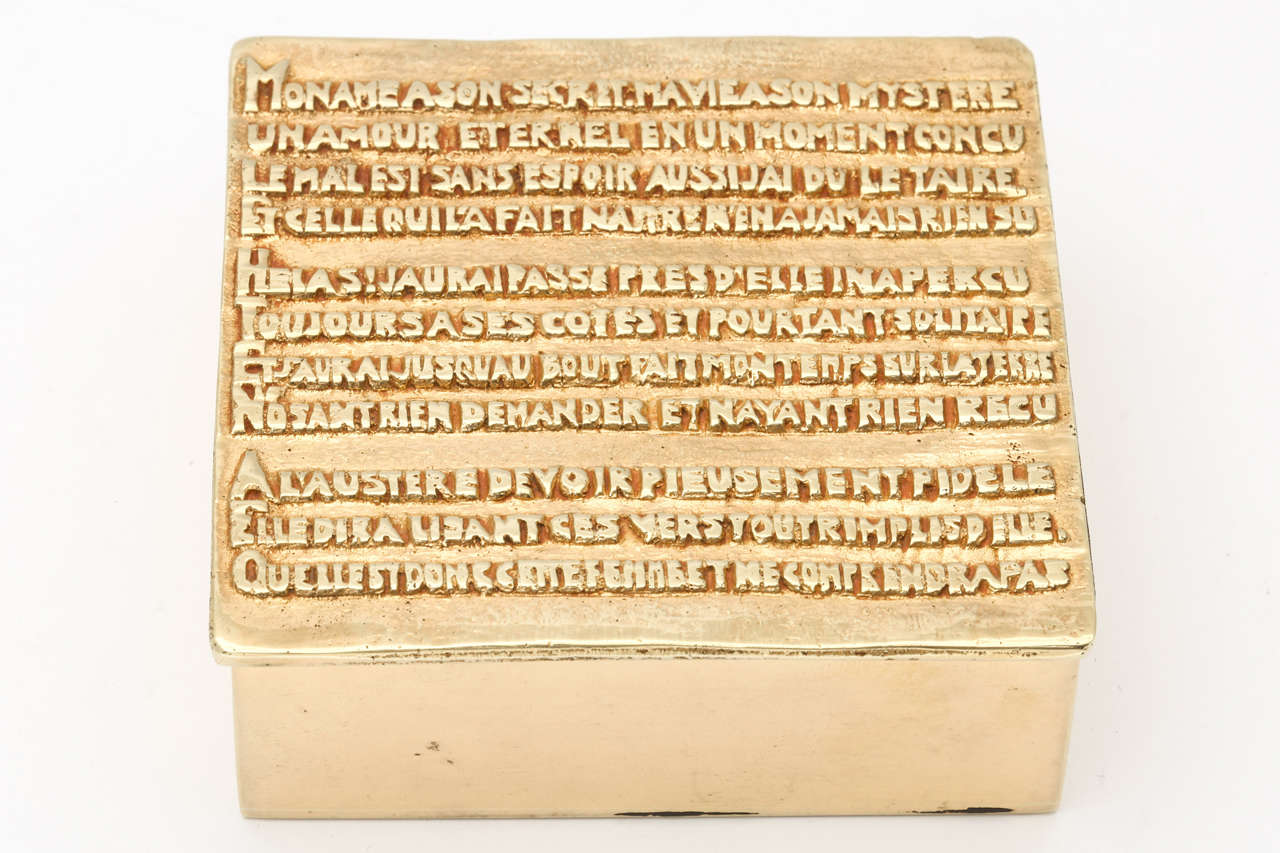 MON AME A SON SECRET. MA VIE A SON MYSTERE
UN AMOUR ETERNEL EN UN MOMENT CONCU
LE MAL EST SANS ESPOIR AUSSI JAI DU LE TAIRE.
ET CELLE QUI L'A FAIT NAITRE N'EN A JAMAIS RIEN SU
HELAS! JAURAI PASSE PRES D'ELLE INAPERCU
TOUJOURS A SES COTES ET POURTANT SOLITAIRE
ET JAURAI JUSQUAU BOUT FAIT MON TEMPS SUR LA TERRE
N'OSANT RIEN DEMANDER ET NAYANT RIEN RECU
A L'AUSTERE DEVOIR PIEUSEMENT FIDELE
ELLE DIRA LISANT CES VERS TOUT RIMPLIS D ELLE.
QUELLE EST DONC CETTE FEMME ET NE COMPRENDRA PAS